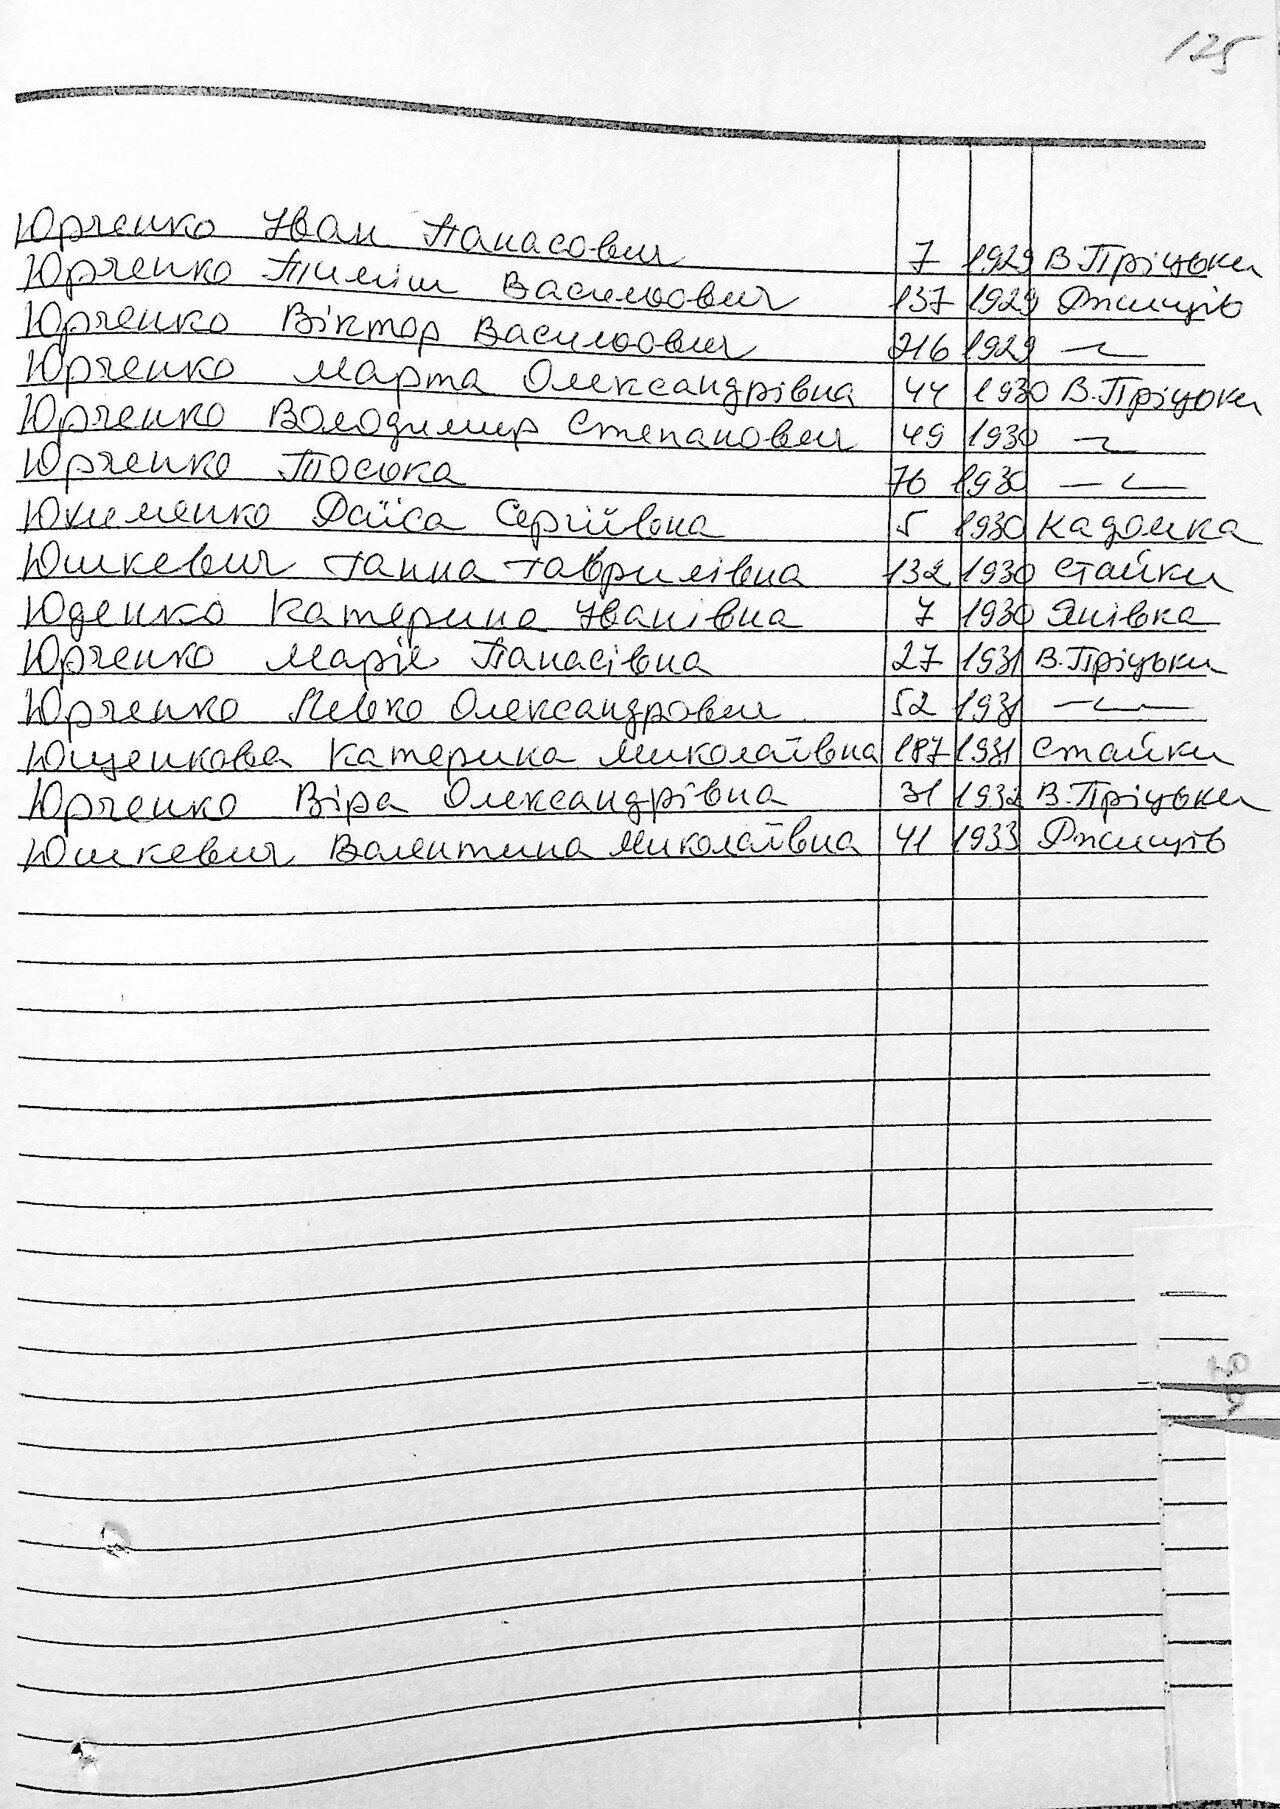 125
Юрченко Іван Панасович 7 1929 В.Пріцьки
Юрченко Тиміш Васильович 137 1929 Ржищів
Юрченко Віктор Васильович 216 1929 —〃—
Юрченко Марта Олександрівна 44 1930 В.Пріцьки
Юрченко Володимир Степанович 49 1930 —〃—
Юрченко Тоська 76 1930 —〃—
Юхименко Раїса Сергіївна 5 1930 Кадомка
Юшкевич Ганна Гаврилівна 132 1930 Стайки
Юденко Катерина Іванівна 7 1930 Янівка
Юрченко Марія Панасівна 27 1931 В.Пріцьки
Юрченко Левко Олександрович 52 1931 —〃—
Ющенкова Катерина Миколаївна 187 1931 Стайки
Юрченко Віра Олександрівна 31 1932 В.Пріцьки
Юшкевич Валентина Миколаївна 41 1933 Ржищів